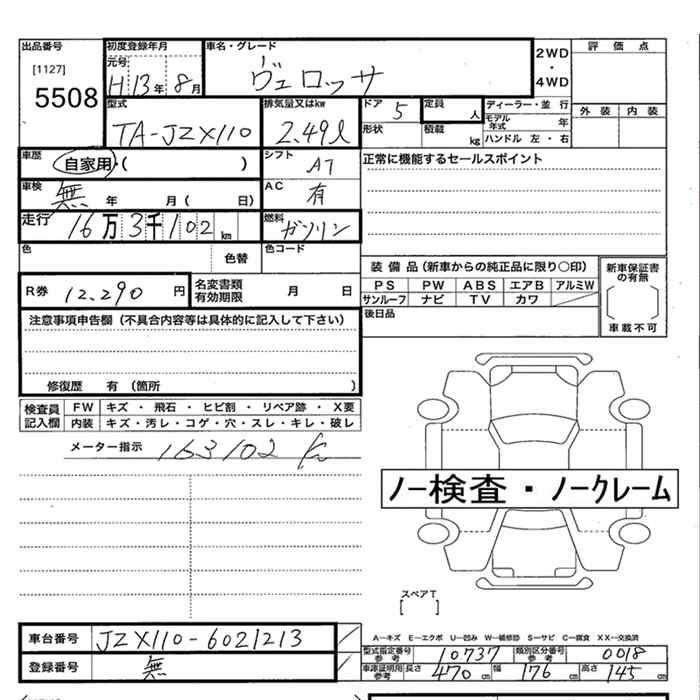 出品番号
[1127]
5508
初度登録年月
元号
H13年8月
車名・グレード
ヴェロッサ
2WD
・
4WD
評 価 点
外 装 内 装
型式
TA-JZX110
排気量又はkw
2.49ℓ
ドア 5
定員 人
形状
積載 kg
ディーラー・並 行
モデル年式 年
ハンドル 左・右
車歴
自家用・( )
シフト AT
正常に機能するセールスポイント
車検 無 年 月( 日)
AC 有
走行 16万3千102km
燃料 ガソリン
色 色替
色コード
装 備 品 (新車からの純正品に限り○印)
PS PW ABS エアB アルミW
サンルーフ ナビ TV カワ
新車保証書の有無
[ ]
車載不可
後日品
R券 12.290 円
名変書類有効期限 月 日
注意事項申告欄(不具合内容等は具体的に記入して下さい)
修復歴 有(箇所 )
検査員記入欄
FW キズ・飛石・ヒビ割・リペア跡・X要
内装 キズ・汚レ・コゲ・穴・スレ・キレ・破レ
メーター指示 163102 km
ノー検査・ノークレーム
スペアT
[ ]
車台番号 JZX110-6021213
登録番号 無
A―キズ E―エクボ U―凹み W―補修跡 S―サビ C―腐食 XX―交換済
型式指定番号参考 10737
類別区分番号参考 0018
車庫証明用参考 長さ 470cm 幅 176cm 高さ 145cm